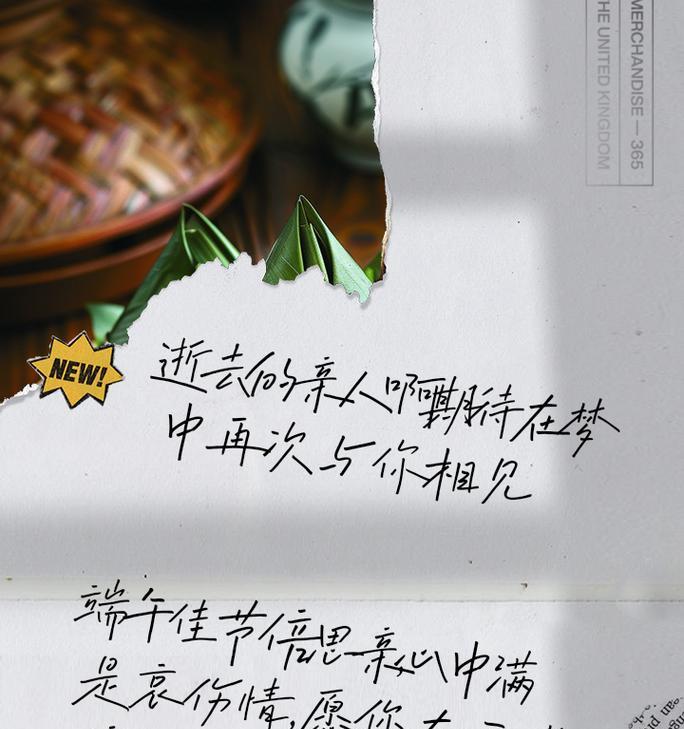 MERCHANDISE — 365
THE UNITED KINGDOM
NEW!
逝去的亲人啊期待在梦
中再次与你相见
端午佳节倍思亲心中满
是哀伤情,愿你在